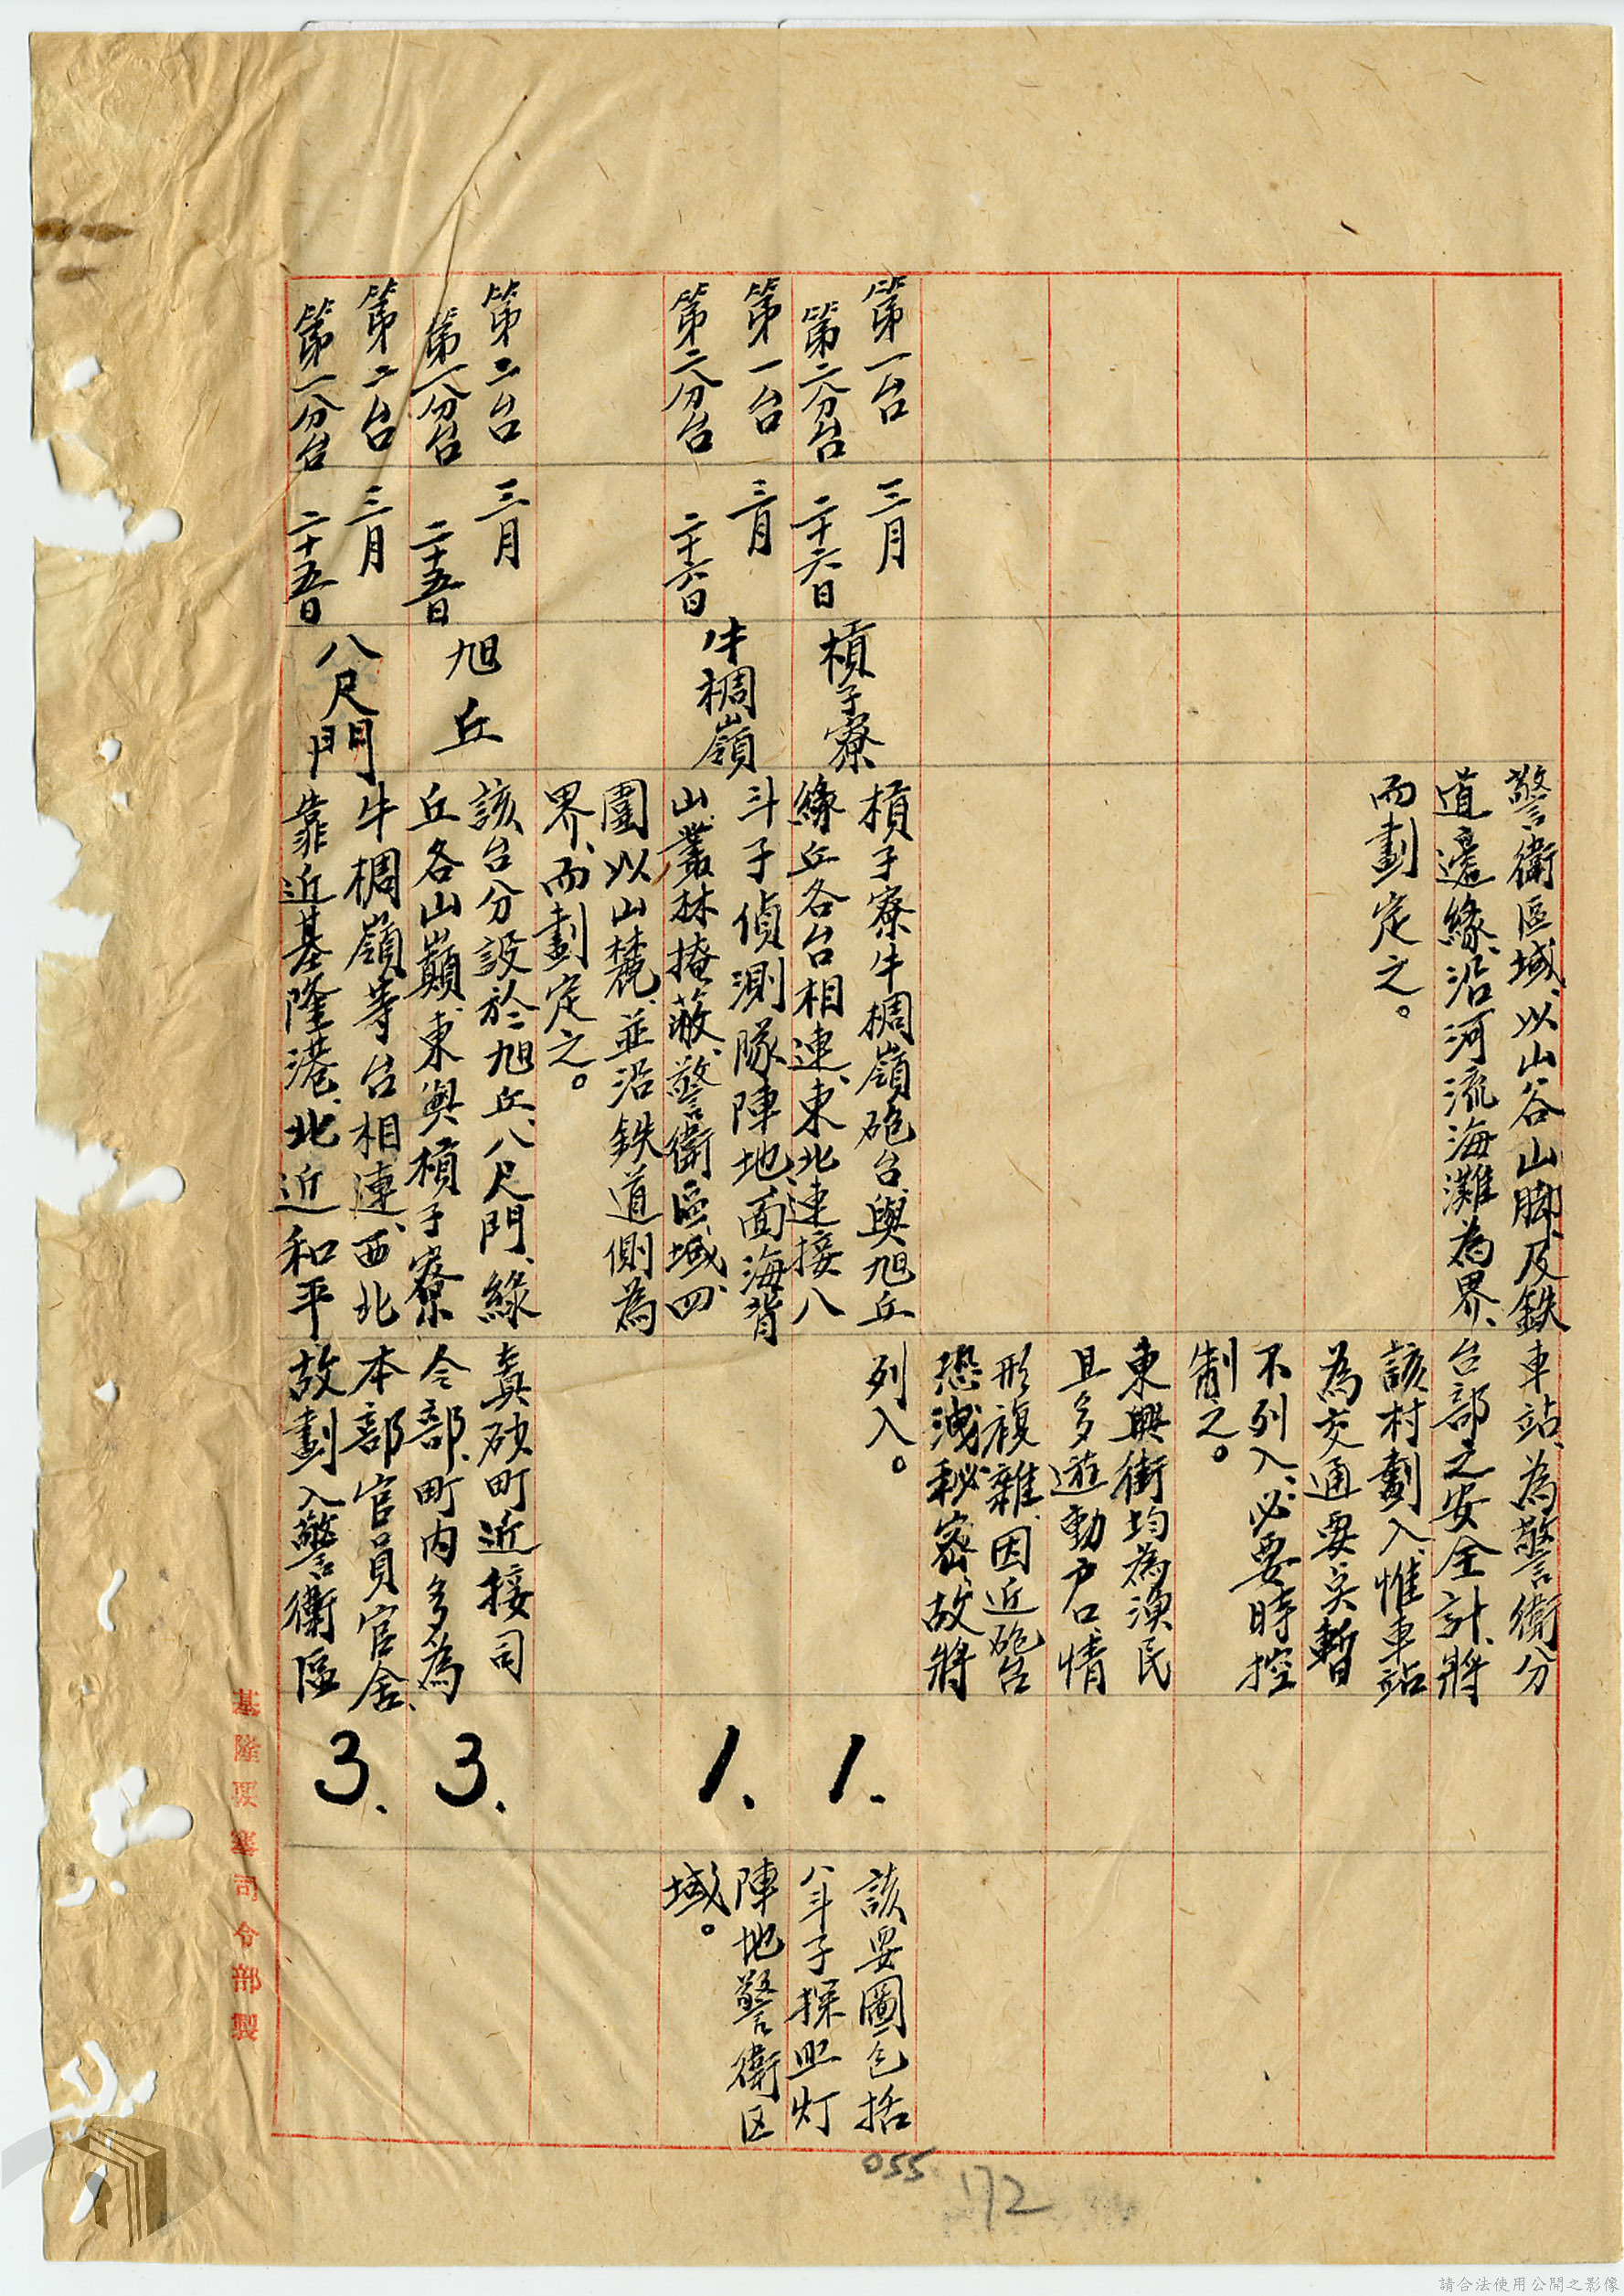 警衛區域、以山谷山脚、及鉄
道邊緣、沿河流海灘為界、
而劃定之。
車站、為警衛分
台部之安全計、將
該村劃入、惟車站
為交通要矣暫
不列入、必要時控
制之。
東興街均為漁民
且多遊動户口、情
形複雜、因近砲台
恐洩秘密、故將
列入。
第一台
第二分台
三月
二十六日
槓子寮
槓子寮牛稠嶺砲台、與旭丘
綠丘各台相連、東北連接八
1.
該要圖包括
八斗子探照灯
第一台
第二分台
三月
二十六日
牛稠嶺
斗子偵測隊陣地、面海背
山、叢林掩蔽、警衛區域、四
圍以山麓、並沿鉄道側為
界、而劃定之。
1、
陣地警衛区
域。
第二台
第一分台
三月
二十五日
旭丘
該台分設於旭丘、八尺門、綠
丘各山巔、東與槓子寮
真砂町近接司
令部、町内多為
3.
第二台
第一分台
三月
二十五日
八尺門
牛稠嶺等台相連、西北
靠近基隆港、北近和平
本部官員官舍、
故劃入警衛區
3.
基隆要塞司令部製
055
172
請合法使用公開之影像